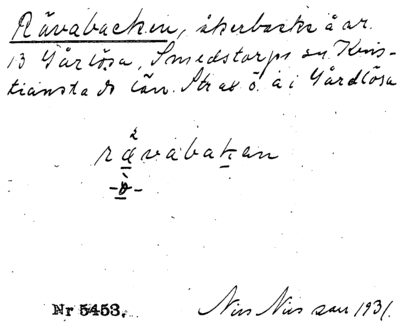 Rävabacken, åkerbacke å ar.
13 Gårlösa, Smedstorps sn Kris-
tianstads län. Strax ö. å i Gårdlösa
2
rävabakan
-ò-
Nr 5453. Nils Nilsson 1931.